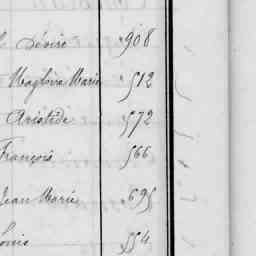 Désiré 908
Magloire Marie 512
Aristide 572
François 566
Jean Marie 695
Louis 554